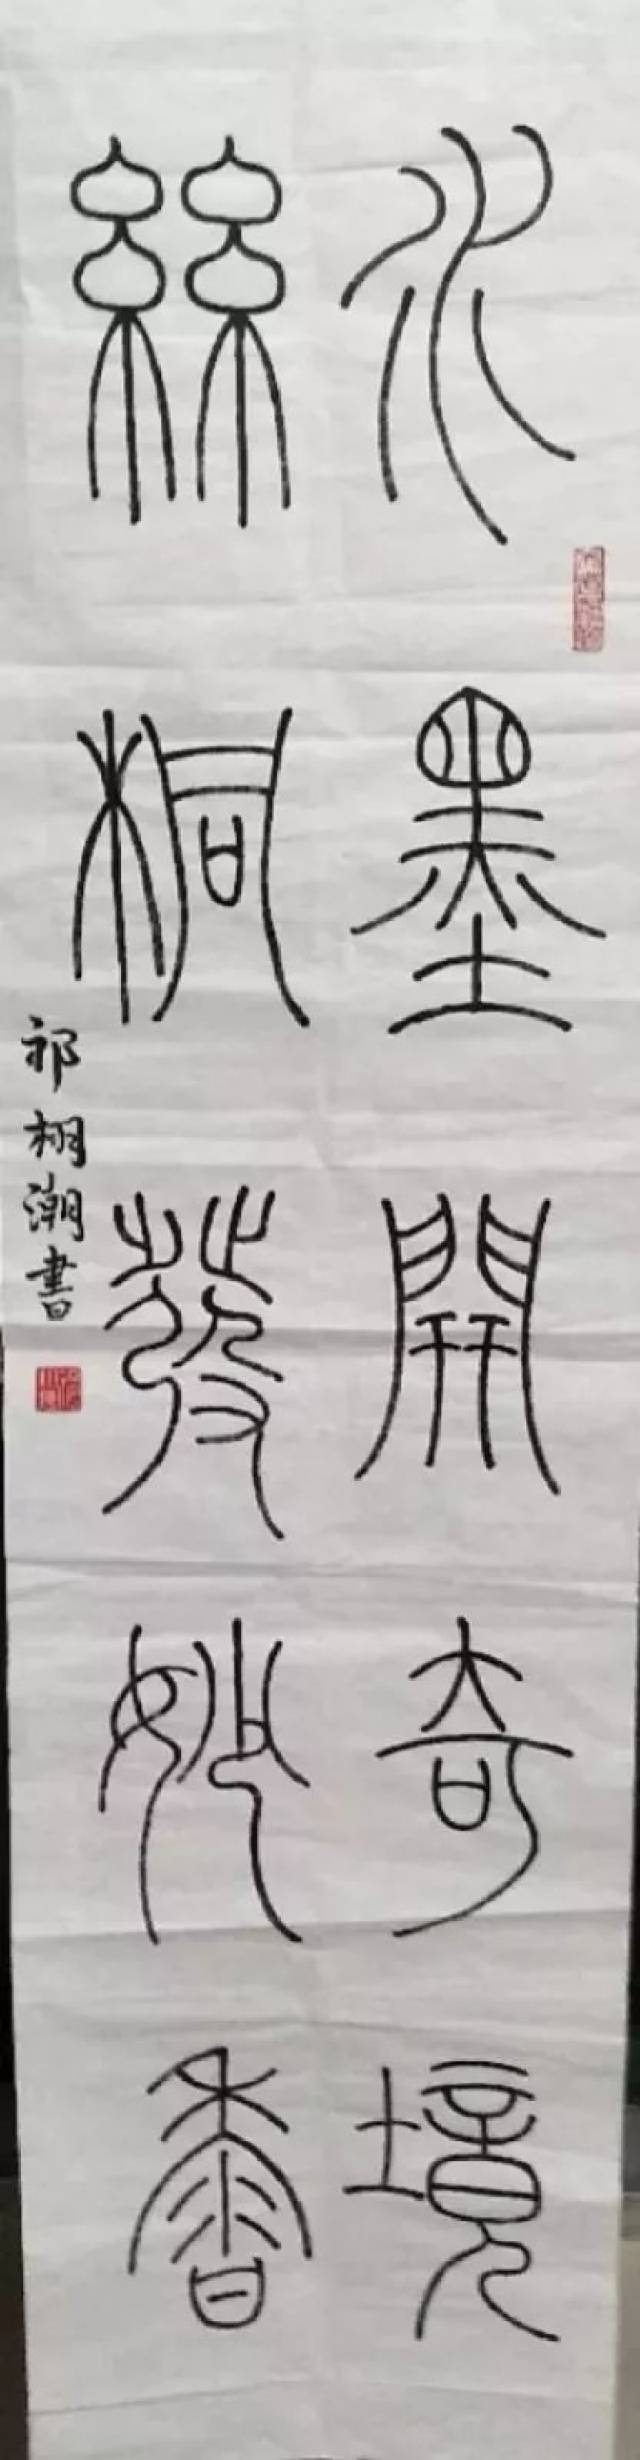 水墨開奇境
絲桐發妙香
祁栩潮書